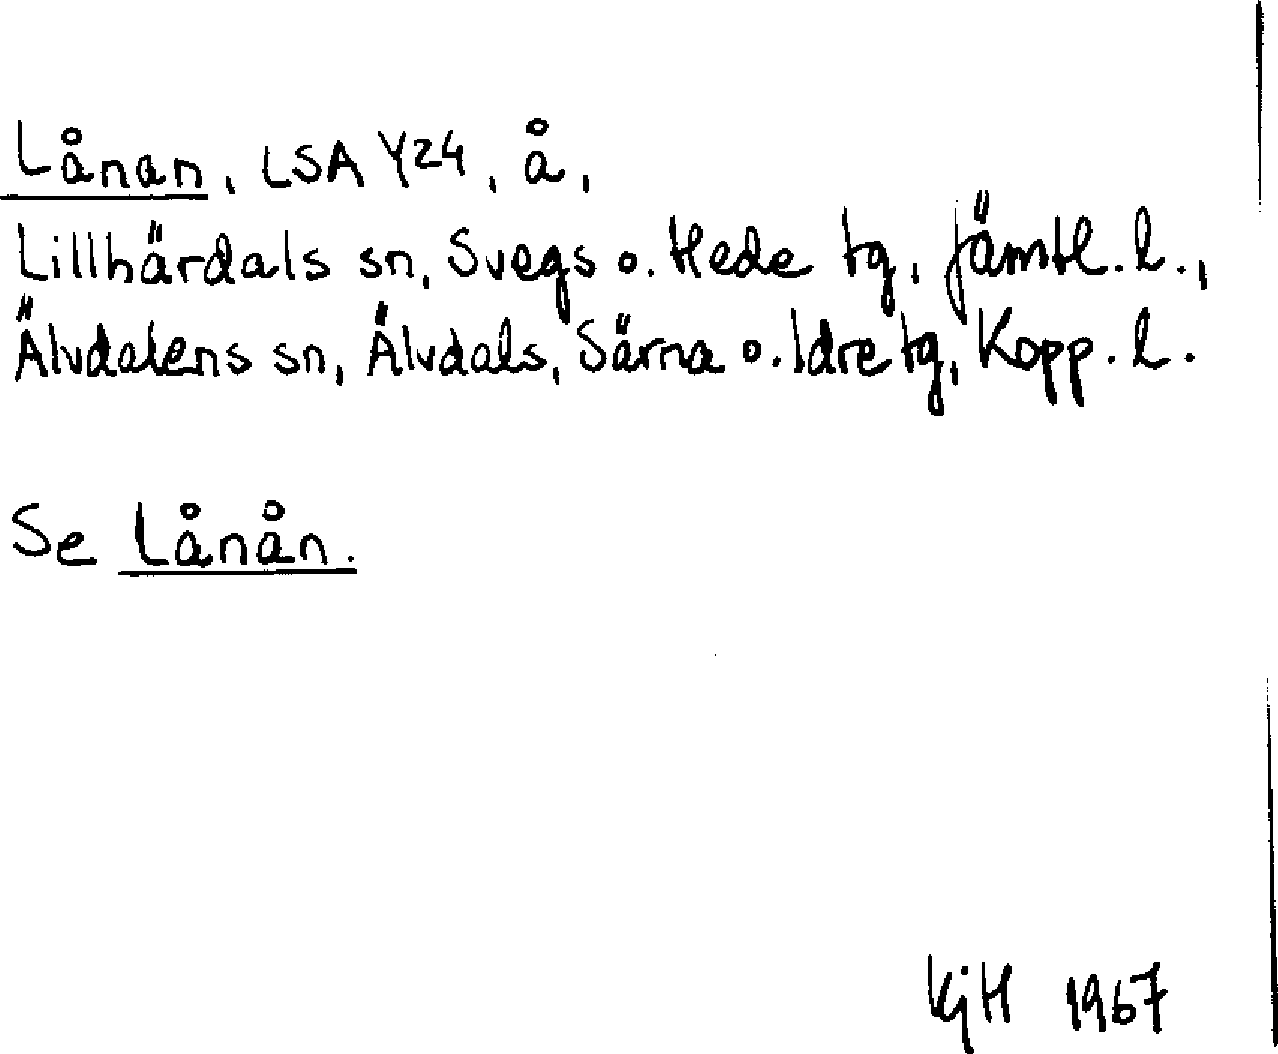 Lånan, LSA Y24, å,
Lillhärdals sn, Svegs o. Hede tg, Jämtl. l.,
Älvdalens sn, Älvdals, Särna o. Idre tg, Kopp. l.
Se Lånån.
KjH 1967